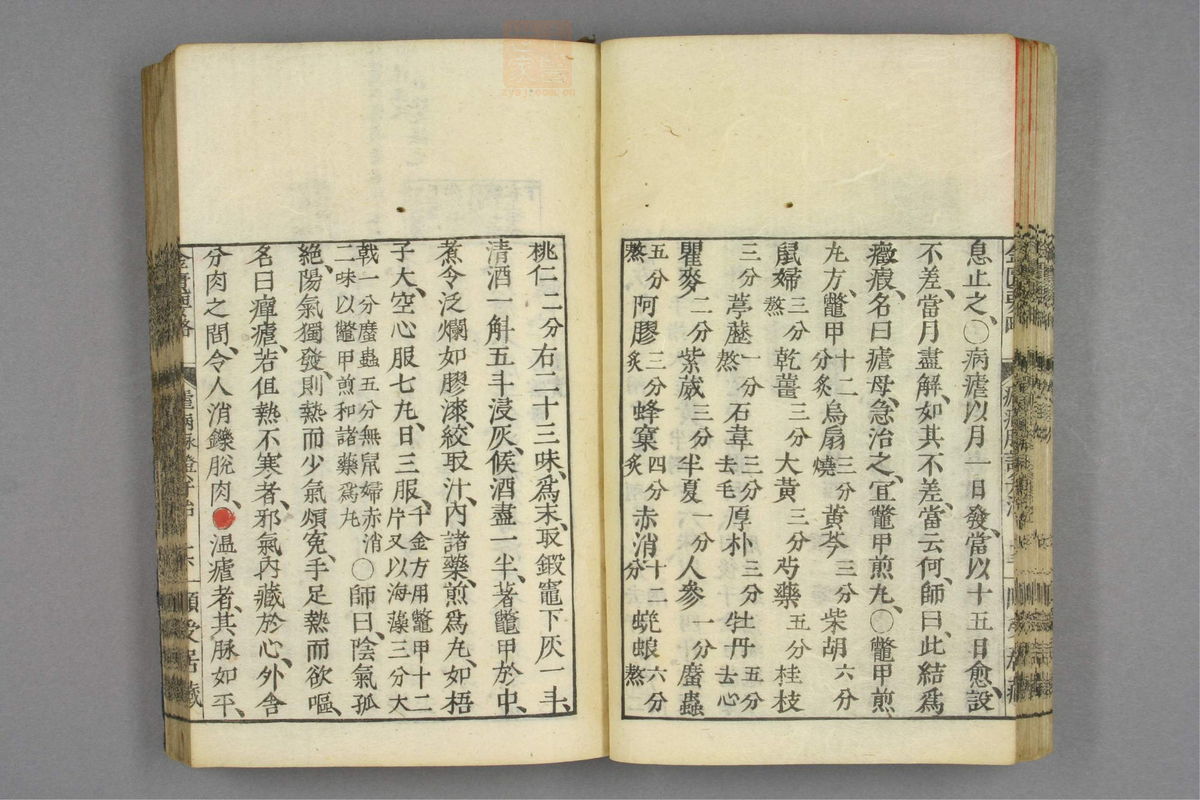 息止之、○病瘧以月一日發、當以十五日愈、設
不差、當月盡解、如其不差、當云何、師曰、此結爲
癥瘕、名曰瘧母、急治之、宜鼈甲煎丸、○鼈甲煎
丸方、鼈甲十二分炙烏扇三分燒黃芩三分柴胡六分
鼠婦三分熬乾薑三分大黃三分芍藥五分桂枝
三分葶藶一分熬石韋三分去毛厚朴三分牡丹五分去心
瞿麥二分紫葳三分半夏一分人參一分䗪蟲
五分熬阿膠三分炙蜂窠四分炙赤消十二分蜣蜋六分熬
桃仁二分右二十三味、爲末、取鍛竈下灰一斗、
清酒一斛五斗浸灰、候酒盡一半、著鼈甲於中、
煮令泛爛如膠漆、絞取汁、內諸藥、煎爲丸、如梧
子大、空心服七丸、日三服、千金方用鼈甲十二片又以海藻三分大
戟一分䗪蟲五分無鼠婦赤消二味以鼈甲煎和諸藥爲丸○師曰、陰氣孤
絕、陽氣獨發、則熱而少氣煩寃、手足熱而欲嘔、
名曰癉瘧、若但熱不寒者、邪氣內藏於心、外舍
分肉之間、令人消鑠脫肉、溫瘧者、其脉如平、